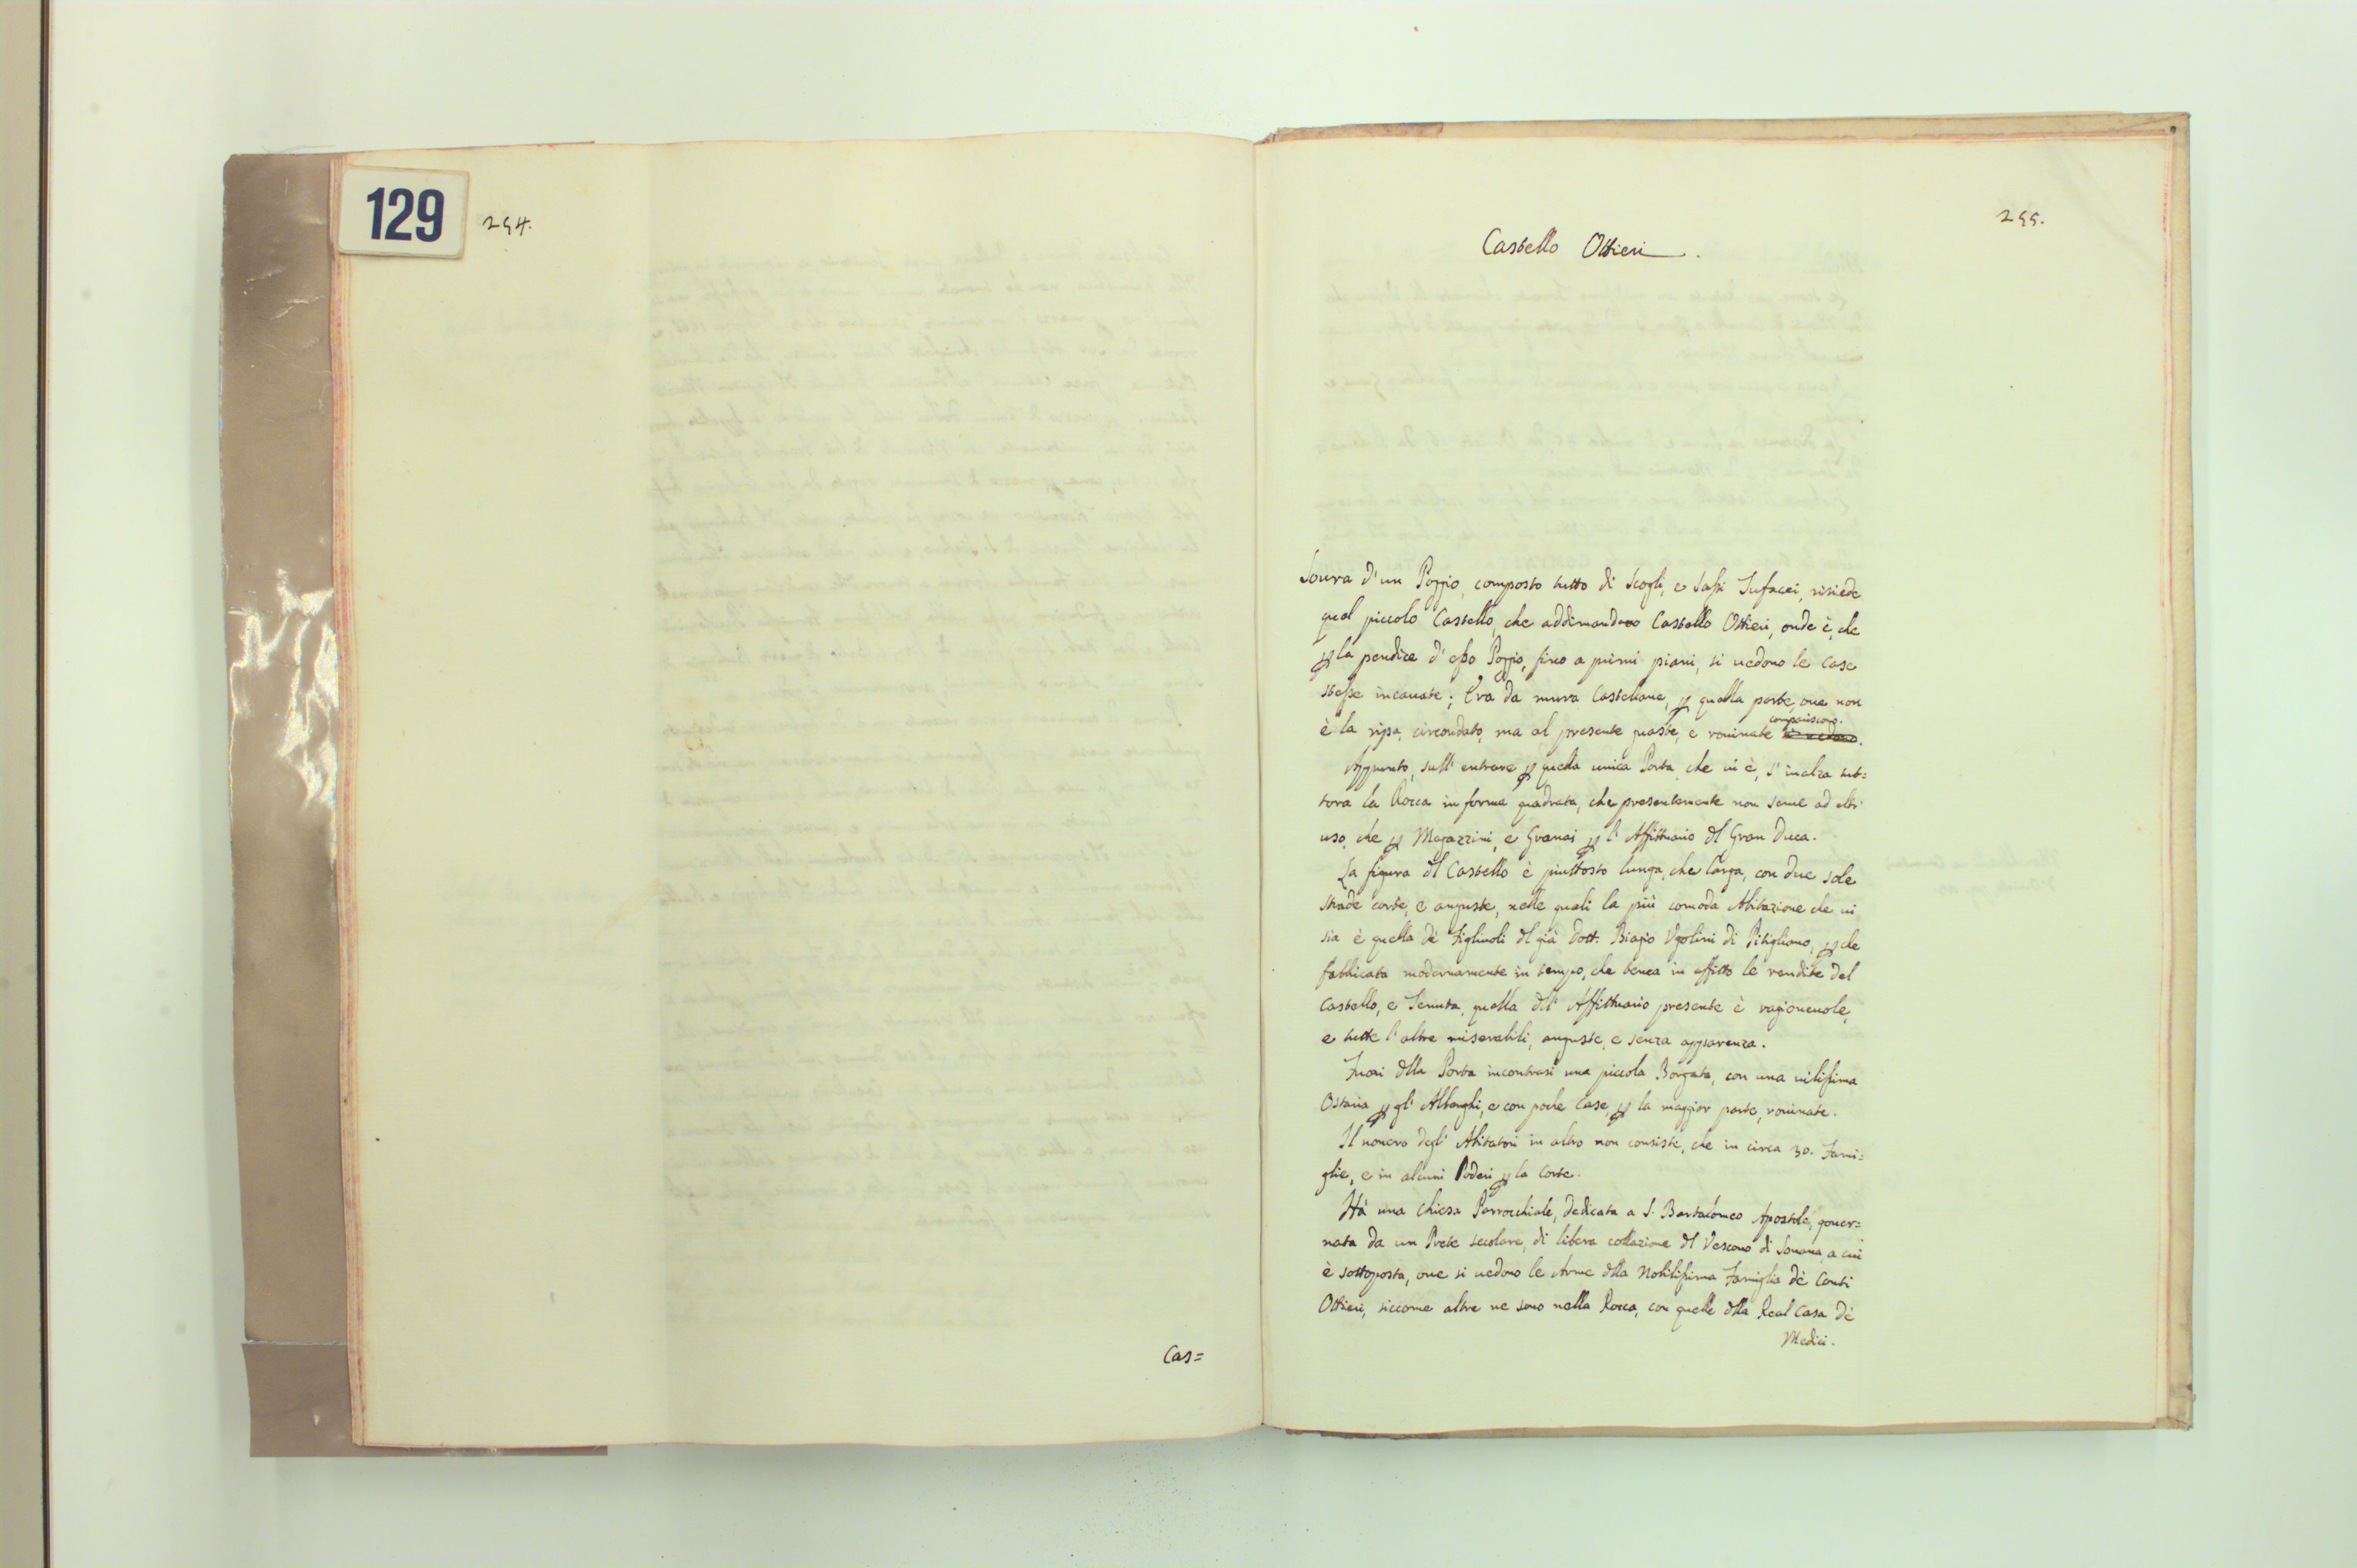 129
254.
Cas=
255.
Castello Ottieri.
Sovra d'un Poggio, composto tutto di Scogli, e Sassi Tufacei, risiede
quel piccolo Castello, che addimandano Castello Ottieri, onde è, che
ꝑ la pendice d'esso Poggio, fino a primi piani, si uedono le Case
stesse incauate; Era da mura Castellane, ꝑ quella parte, oue non
compariscono.
è la ripa, circondato, ma al presente guaste, e rouinate si uedono.
Appunto, sull'entrare ꝑ quella unica Porta, che ui è, s'inalza tut=
tora la Rocca in forma quadrata, che presentemente non serue ad altr'
uso, che ꝑ Magazzini, e Granai ꝑ l'Affittuario dl Gran Duca.
La figura dl Castello è piuttosto lunga, che larga, con due sole
strade corte, e anguste, nelle quali la più comoda Abitazione che ui
sia è quella dè Figliuoli dl già Dott. Biagio Vgolini di Pitigliano, ꝑ che
fabbricata modernamente in tempo, che tenea in affitto le rendite del
Castello, e Tenuta, quella dll'Affittuario presente è ragioneuole,
e tutte l'altre miserabili, anguste, e senza apparenza.
Fuori dlla Porta incontrasi una piccola Borgata, con una uilissima
Ostaria ꝑ gl'Alberghi, e con poche Case, ꝑ la maggior parte, rouinate.
Il nouero degl'Abitatori in altro non consiste, che in circa 30. Fami=
glie, e in alcuni Poderi ꝑ la Corte.
Hà una Chiesa Parrocchiale, dedicata a S. Bartalomeo Apostolo, gouer=
nata da un Prete secolare, di libera collazione dl Vescouo di Souana, a cui
è sottoposta, oue si uedono le Arme dlla Nobilissima Famiglia dè Conti
Ottieri, siccome altre ne sono nella Rocca, con quelle dlla Real Casa dè
Medici.